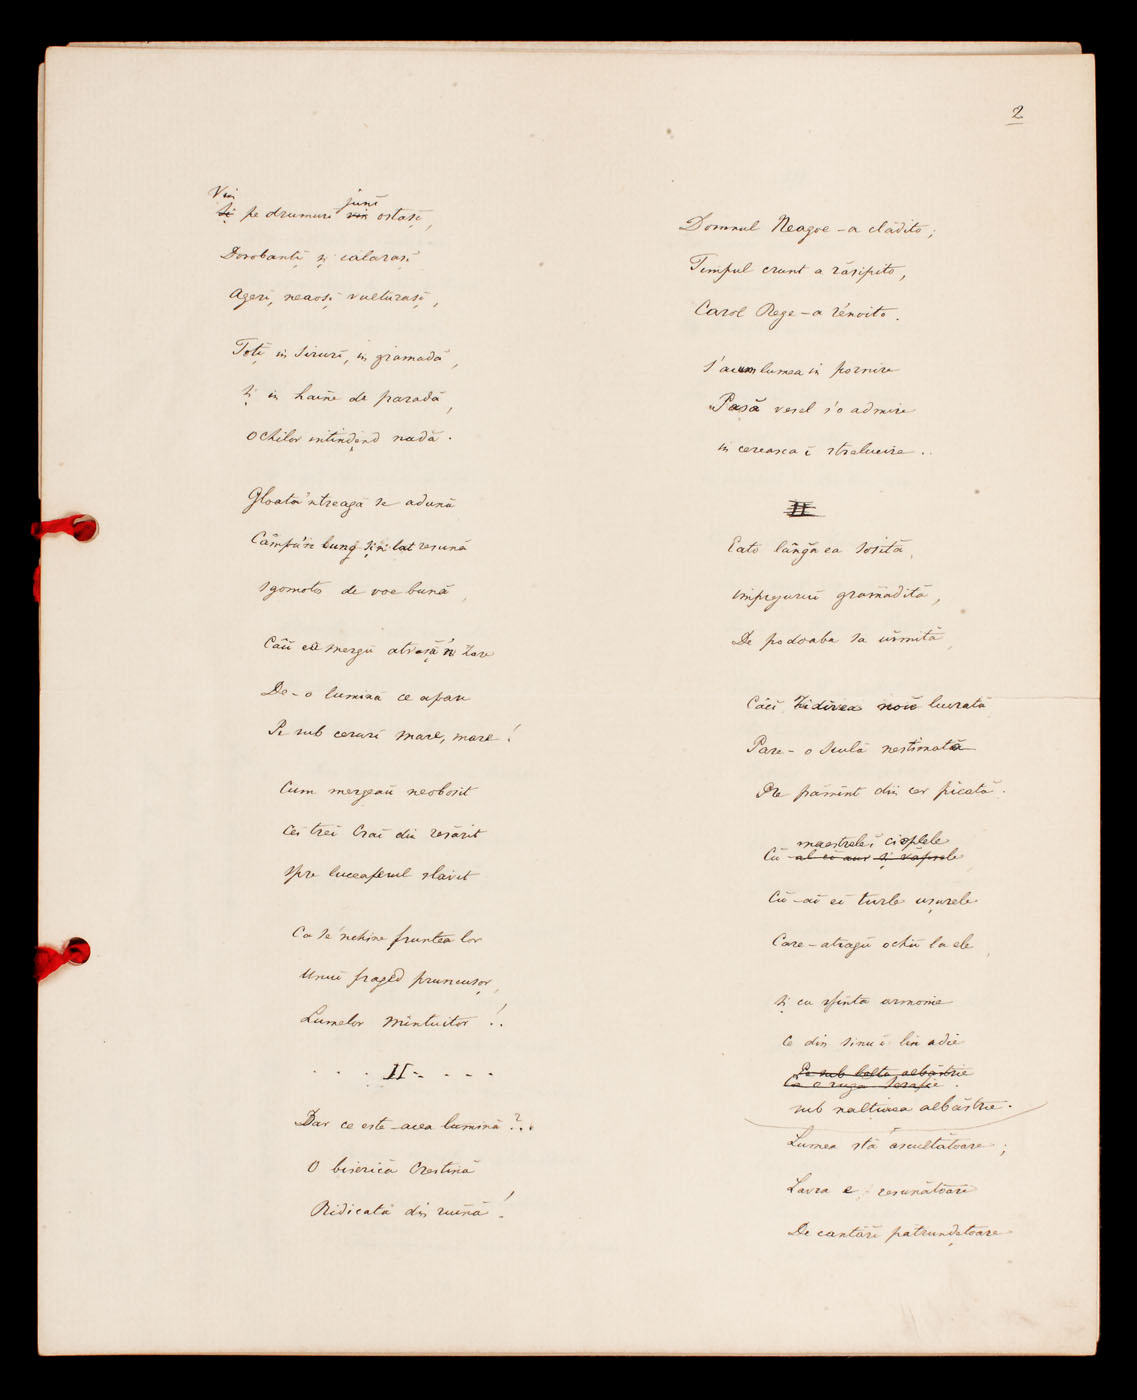 2
Vin junĭ
Și pe drumurĭ vin ostașĭ,
Dorobanțĭ și călărașĭ
Agerĭ, neaoșĭ vulturașĭ,
Toțĭ in șirurĭ, in gramadă,
Și in haine de paradă,
Ochilor intindend nadă.
Gloata'ntreagă se adună
Câmpu'n lung și'n lat resună
Sgomots de voe bună,
Căcĭ eĭ mergŭ atrașĭ 'n zare
De-o lumină ce apare
Pe sub cerurĭ mare, mare!
Cum mergeaŭ neobosit
Ceĭ treĭ Craĭ din resărit
Spre luceaferul slăvit
Ca se'nchine fruntea lor
Unuĭ fraged pruncușor,
Lumelor Mîntuitor!.
. . . II . . . .
Dar ce este acea lumină?..
O biserică Creștină
Ridicată din ruină!
Domnul Neagoe-a clădito;
Timpul crunt a răsipito,
Carol Rege-a rénoito.
S'acum lumea in pornire
Pasă vesel s'o admire
in cereasca ĭ strelucire..
II
Eato lângă ea sosită,
impregiurŭ grămădită,
De podoaba sa uimită,
Căcĭ zidirea noŭ lucrată
Pare-o sculă nestimată
Pe pămînt din cer picată.
maestrele ĭ cioplele
Cŭ al eĭ aur și văpsele
Cŭ-aĭ eĭ turle ușurele
Care-atragŭ ochiĭ la ele,
Și cu sfinta armonie
Ce din sinu ĭ lin adie
Pe sub bolta albăstrie
Ca o rugă serafie.
sub nalțimea albăstrie.
Lumea stă ascultătoare;
Lavra e resunătoare
De cantărĭ patrundetoare